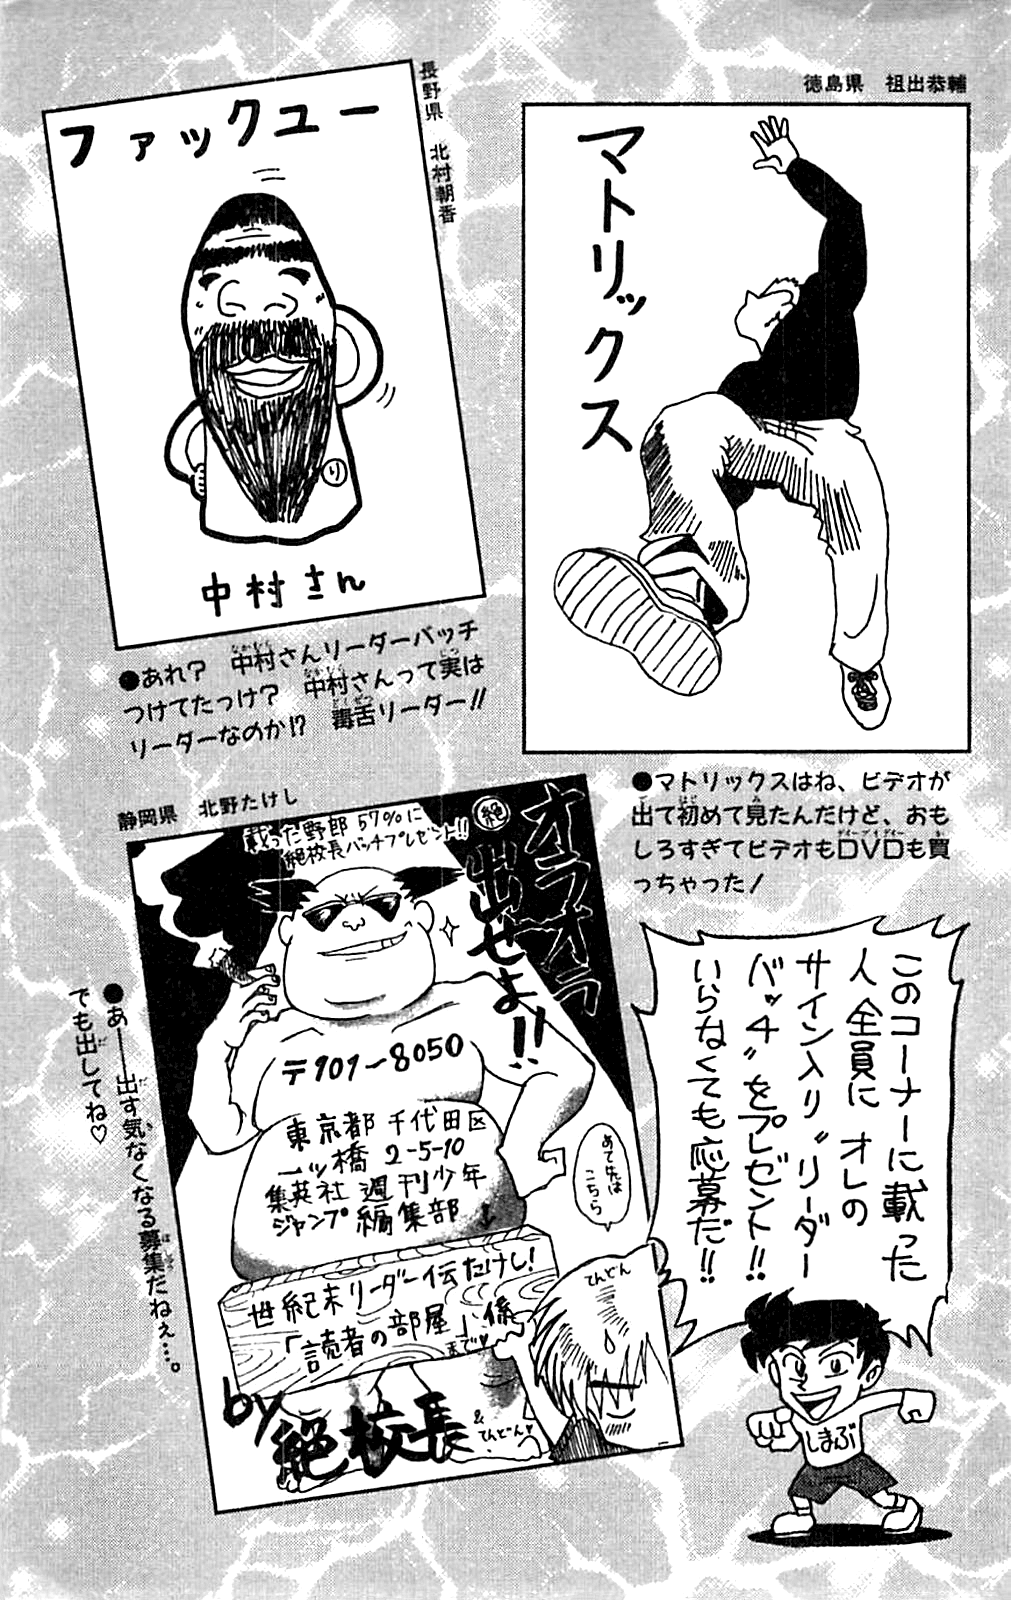 徳島県　祖出恭輔
マトリックス
●マトリックスはね、ビデオが
出て初めて見たんだけど、おも
しろすぎてビデオもDVDも買
っちゃった!
長野県　北村朝香
ファックユー
り
中村さん
●あれ?　中村さんリーダーバッチ
つけてたっけ?　中村さんって実は
リーダーなのか!?　毒舌リーダー!!
静岡県　北野たけし
載った野郎57%に
絶校長バッチプレゼント!!
絶
オラオラ
出せよ!!
〒101-8050
東京都 千代田区
一ツ橋 2-5-10
集英社 週刊少年
ジャンプ 編集部
あて先は
こちら
世紀末リーダー伝たけし!
「読者の部屋」係
まで
てんどん
by
絶校長
&
てんどん
●あ——出す気なくなる募集だねぇ…。
でも出してね♡
このコーナーに載った
人全員に オレの
サイン入り〝リーダー
バッチ〟をプレゼント!!
いらなくても応募だ!!
しまぶ